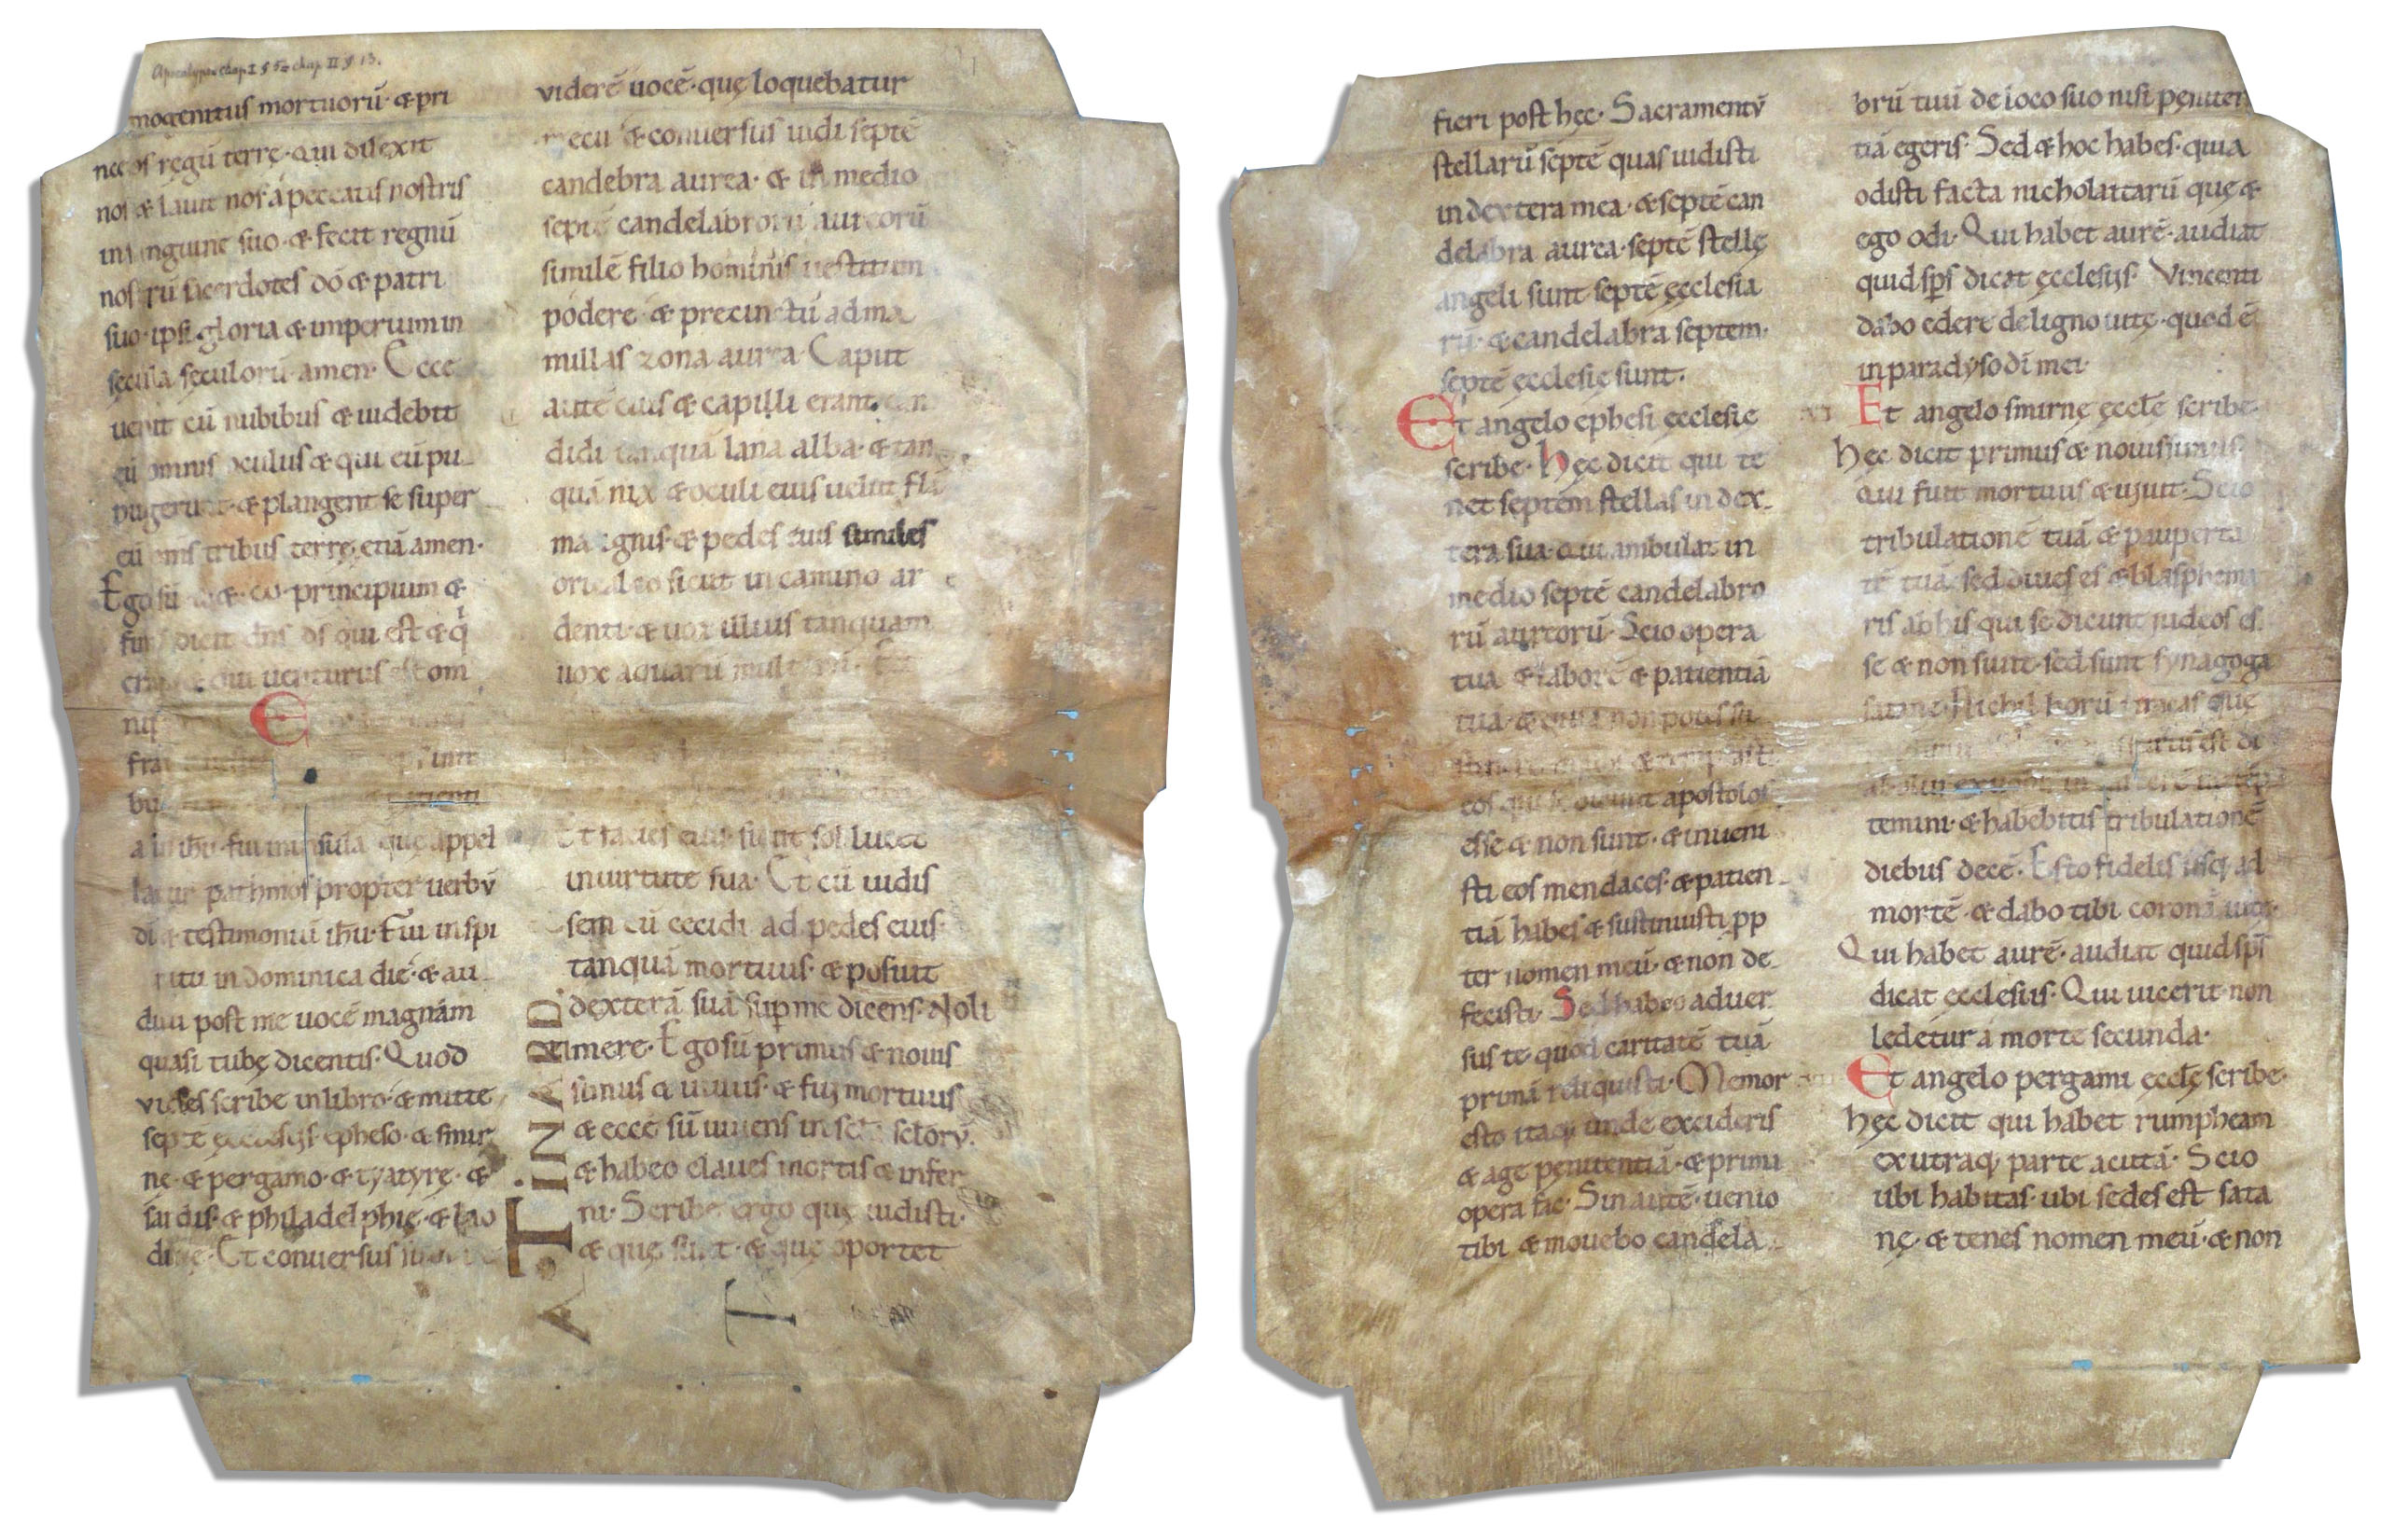 Apocalypse chap. I § 5 = chap. II § 13.
mogenitus mortuorū· & pri
regū terrę· qui dilexit
nos & lauit nos a peccatis nostris
in suo· & fecit regnū
sacerdotes dō & patri
suo· ipsi gloria & imperium in
secula seculorū amen· Ecce
uenit cū nubibus & uidebit
eū omnis oculus & qui eū pu
pugerunt· & plangent se super
eū tribus terrę· etiā amen·
Ego sū & ω· principium &
finis dicit dn̄s ds̄ qui est & q
& qui uenturus est om
E
a in ihū· fui in insula quę appel
latur pathmos propter uerbū
dī & testimoniū ihū· Fui in spi
ritu in dominica die· & au
diui post me uocē magnam
quasi tubę dicentis· Quod
vides scribe in libro· & mitte
septē ecclesiis· epheso· & smir
nę· & pergamo· & tyatyrę· &
sardis· & philadelphię· & lao
Et conuersus
viderē uocē· quę loquebatur
mecū & conuersus uidi septē
candebra aurea· & in medio
septē candelabrorū aureorū
similē filio hominis uestitum
podere· & precinctū ad ma
millas zona aurea· Caput
autē eius & capilli erant can
didi tanquā lana alba· & tan
quā nix & oculi eius uelut flā
ma ignis· & pedes eius similes
oricalco sicut in camino ar
denti· & uox illius tanquam
uox aquarū multarū·
Et facies eius sicut sol lucet
in uirtute sua· Et cū uidis
sem eū cecidi ad pedes eius·
tanquā mortuus· & posuit
dexterā suā sup me dicens· Noli
timere· Ego sū primus & nouis
simus & uiuus· & fui mortuus
& ecce sū uiuens in sclorū·
& habeo claues mortis & infer
ni· Scribe ergo quę uidisti·
& quę sunt· & quę oportet
T
fieri post hęc· Sacramentū
stellarū septē quas uidisti
in dextera mea· & septē can
delabra aurea· septē stellę
angeli sunt septē ęcclesia
rū· & candelabra septem·
septē ęcclesię sunt·
Et angelo ephesi ęcclesie
scribe· Hęc dicit qui te
net septem stellas in dex
tera sua· qui ambulat in
medio septē candelabro
rū aureorū· Scio opera
tua & laborē & patientiā
tuā· & quia non potes su
eos qui se dicunt apostolos
esse & non sunt· & inueni
sti eos mendaces· & patien
tiā habes & sustinuisti pp
ter nomen meū· & non de
fecisti· Sed habeo aduer
sus te quod caritatē tuā
primā reliquisti· Memor
esto itaq; unde excideris
& age penitentiā· & prima
opera fac· Sin autē· uenio
tibi & mouebo candela
brū tuū de loco suo nisi peniten
tiā egeris· Sed & hoc habes· quia
odisti facta nicholaitarū quę &
ego odi· Qui habet aurē· audiat
quid sps̄ dicat ęcclesiis· Vincenti
dabo edere de ligno uitę· quod ē
in paradyso dī mei·
Et angelo smirnę ęccle scribe·
Hęc dicit primus & nouissimus·
qui fuit mortuus & uiuit· Scio
tribulationē tuā & pauperta
tē tuā sed diues es & blasphema
ris ab his qui se dicunt iudeos es
se & non sunt· sed sunt synagoga
satanę· Nichil horū timeas quę
temini· & habebitis tribulationē
diebus decē· Esto fidelis usq; ad
mortē· & dabo tibi coronā uitę·
Qui habet aurē· audiat quid sps̄
dicat ęcclesiis· Qui uicerit· non
ledetur a morte secunda·
Et angelo pergami ęcclę scribe·
Hęc dicit qui habet rumpheam
ex utraq; parte acutā· Scio
ubi habitas· ubi sedes est sata
nę· & tenes nomen meū· & non